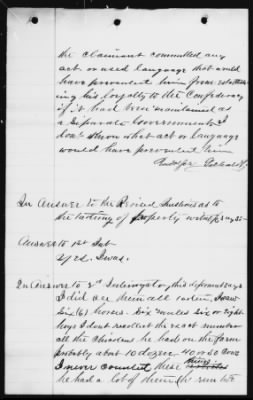 the claimant committed any
act or used language that would
have prevented him from establish
ing his loyalty to the Confederacy
if it had been maintained as
a separate Government I
dont know what act or language
would have prevented him
In Answer to the Revised Interrogatories as to
the taking of property witness says
Answer to 1st Int
Yes. I was.
In Answer to 2d Interrogatory this deponent says
I did see them all taken, I saw
Six (6) horses. Six mules six or eight
hogs I dont recollect the exact number
all the chickens he had on the farm
probably about 10 dozen 40 or 50 Cows
I never counted these
he had a lot of them he run two